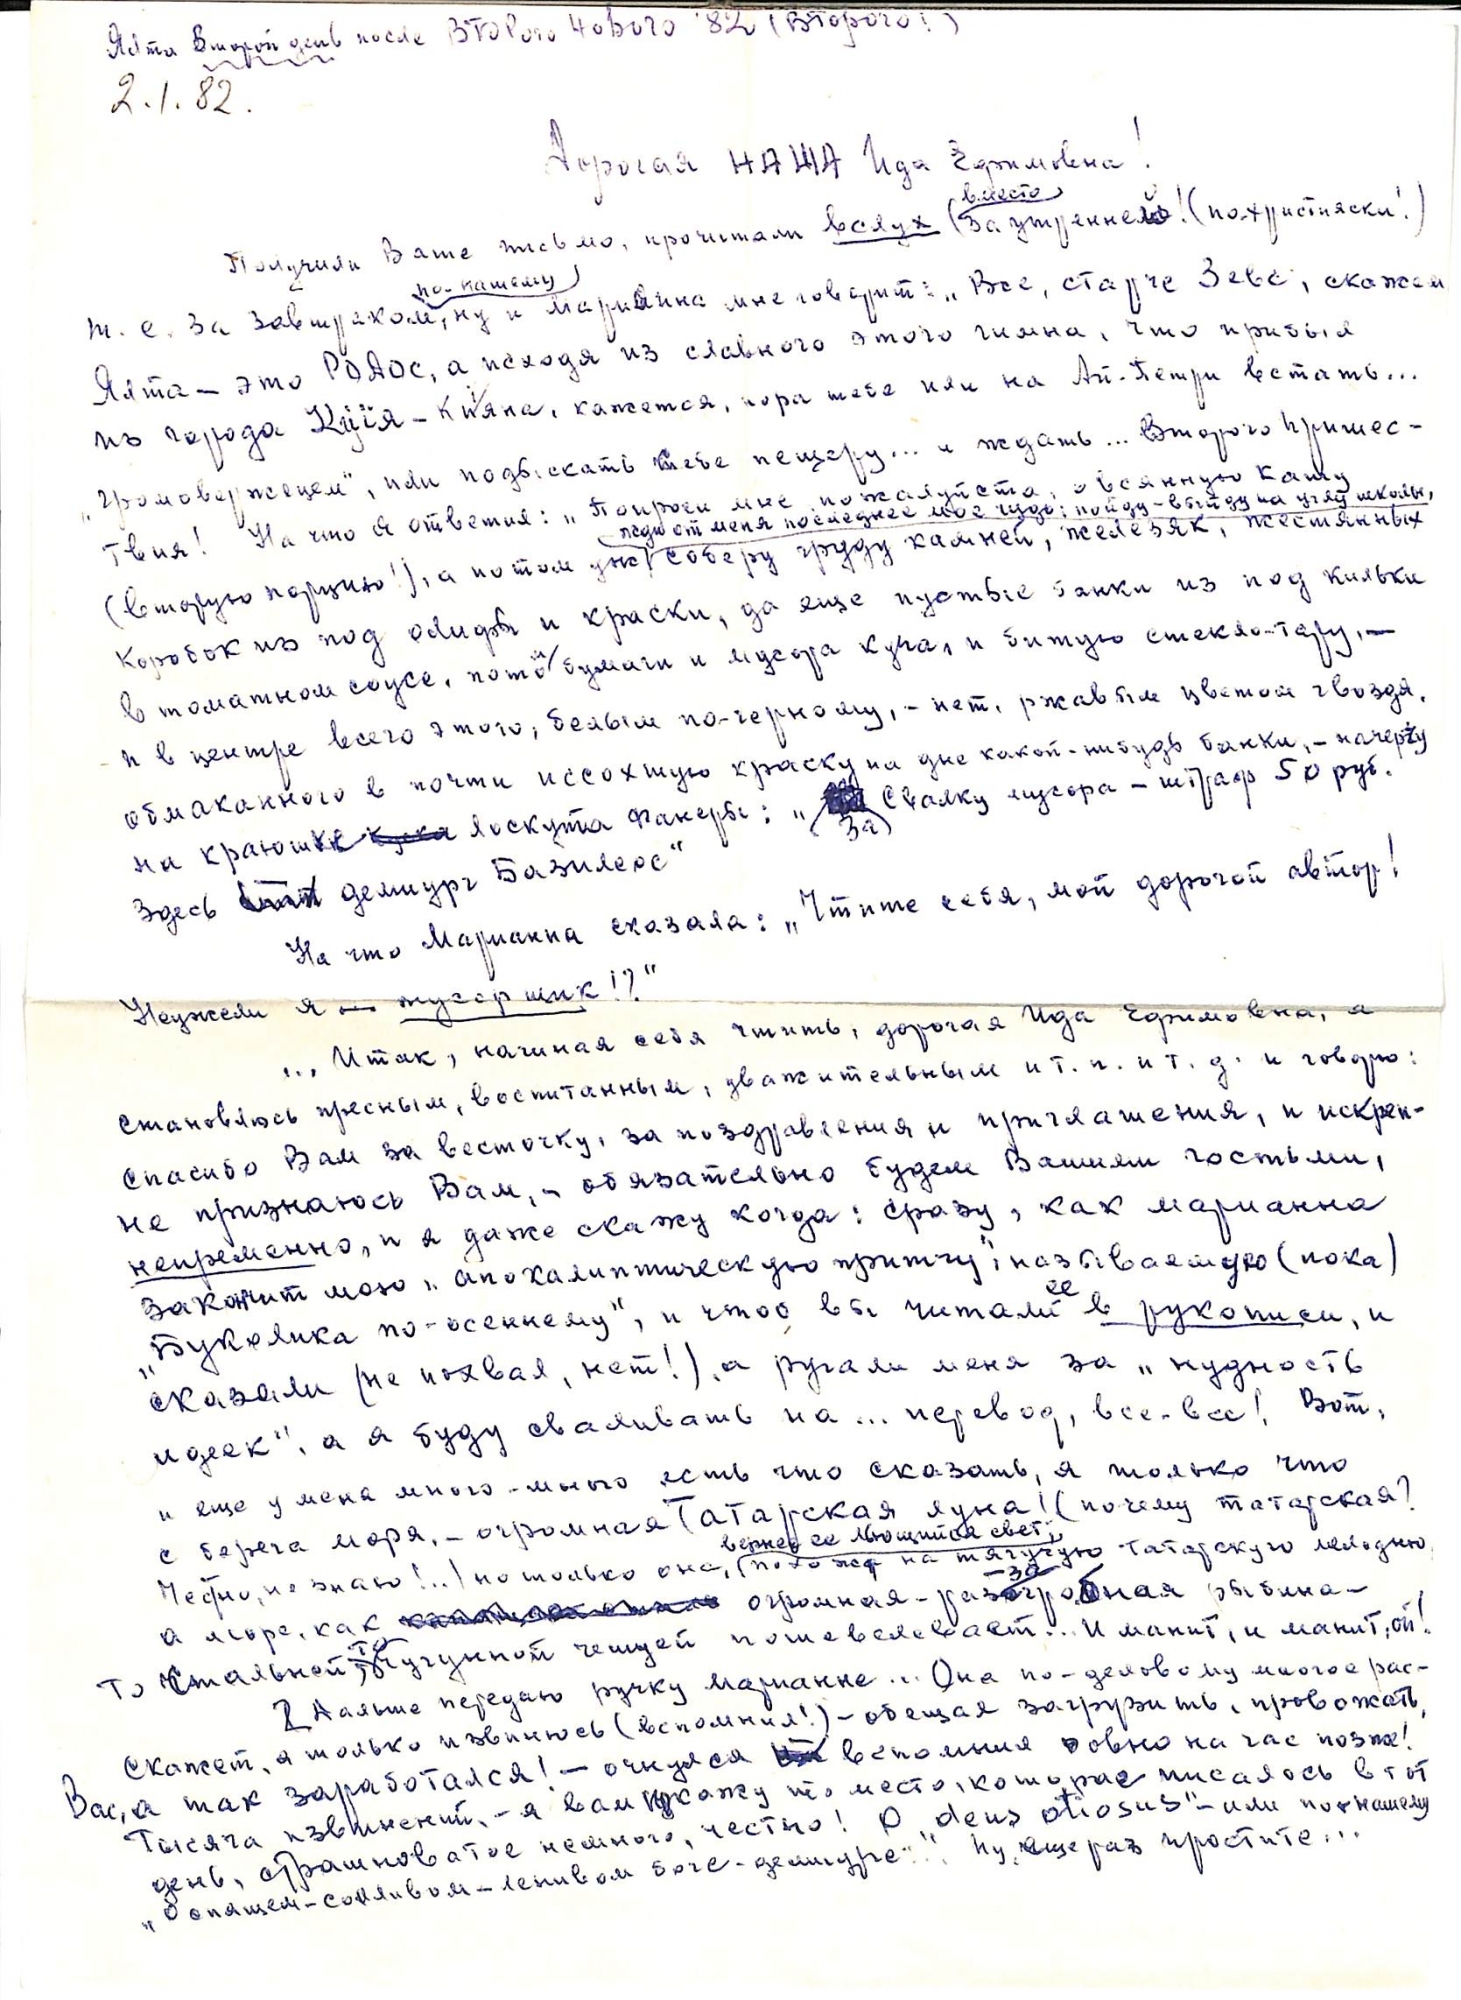 Ялта Второй день после ВТОРОГО Нового '82 (Второго!)
2.1.82.
Дорогая НАША Ида Ефимовна!
Получили Ваше письмо, прочитали вслух (вместо Заутренней! (по-християски!)
т.е. за завтраком, по-нашему, ну и Марианна мне говорит: „Все, старче Зевс, скажем
Ялта – это РОДОС, а исходя из славного этого гимна, что прибыл
из города Кция – Кияна, кажется, пора тебе или на Ай-Петри встать...
„громовержецем", или подыскать тебе пещеру... и ждать... Второго Пришес-
твия! На что я ответил: „Попроси мне, пожалуйста, овсянную кашу
(вторую порцию!), а потом уже жди от меня последнее мое чудо: пойду-выйду на угол школы,
соберу груду камней, железяк, жестянных
коробок из под олифы и краски, да еще пустые банки из под кильки
в томатном соусе, потом бумаги и мусора куча, и битую стекло-тару, –
и в центре всего этого, белым по-черному, – нет, ржавым цветом гвоздя,
обмаканного в почти иссохшую краску на дне какой-нибудь банки, – начержу
на краюшке лоскута фанеры: „За свалку мусора – штраф 50 руб.
Здесь демиург Базилеос"
На что Марианна сказала: „Чтите себя, мой дорогой автор!
Неужели я – мусорщик!?"
... Итак, начиная себя чтить, дорогая Ида Ефимовна, я
становлюсь пресным, воспитанным, уважительным и т.п. и т.д. и говорю:
Спасибо Вам за весточку, за поздравления и приглашения, и искрен-
не признаюсь Вам, – обязательно будем Вашими гостьми,
непременно, и я даже скажу когда: сразу, как Марианна
закончит мою „апокалиптическую притчу", называемую (пока)
„Буколика по-осеннему", и чтоб вы читали ее в рукописи, и
сказали (не похвал, нет!), а ругали меня за „нудность
идеек", а я буду сваливать на... перевод, все-все! Вот,
и еще у меня много-много есть что сказать, я только что
с берега моря, – огромная Татарская луна! (почему татарская?
Честно, не знаю!..) но только она, (вернее ее льющийся свет), похож на тягучую татарскую мелодию,
а море, как огромная – рыбина –
то стальной, то чугунной чешуей пошевеливает... И манит, и манит, ой!
Дальше передаю ручку Марианне... Она по-деловому многое рас-
скажет, я только извинюсь (вспомнил!) – обещал загрузить, провожать
Вас, а так заработался! – очнулся вспомнил ровно на час позже!
Тысяча извинений, – я вам покажу то место, которое писалось в тот
день, страшноватое немного, честно! О „deus otiosus" – или по-нашему
„О спящем-сонливом-ленивом боге-демиурге"! Ну, еще раз простите...